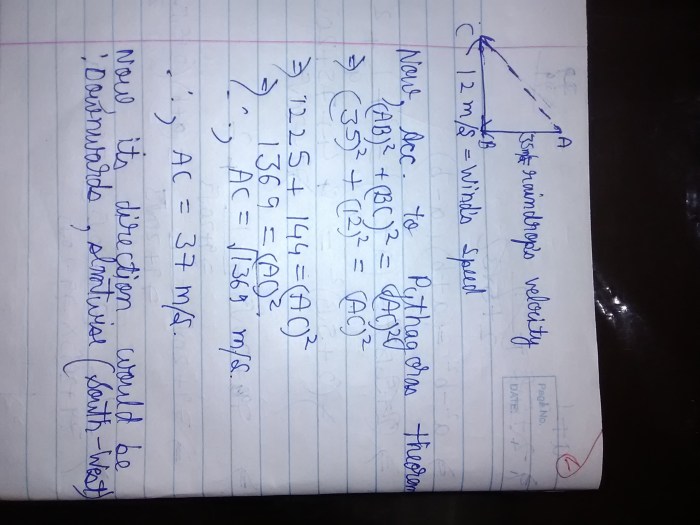 2
PAGE NO.
DATE:
A
35m/s = raindrops velocity
B
C 12 m/s = Winds Speed
Now, Acc. to Pythagoras theorem
(AB)² + (BC)² = (AC)²
⇒ (35)² + (12)² = (AC)²
⇒ 1225 + 144 = (AC)²
⇒ 1369 = (AC)²
∴, AC = √1369 m/s.
∴, AC = 37 m/s.
Now, its direction would be
'Downwards, (South-West)